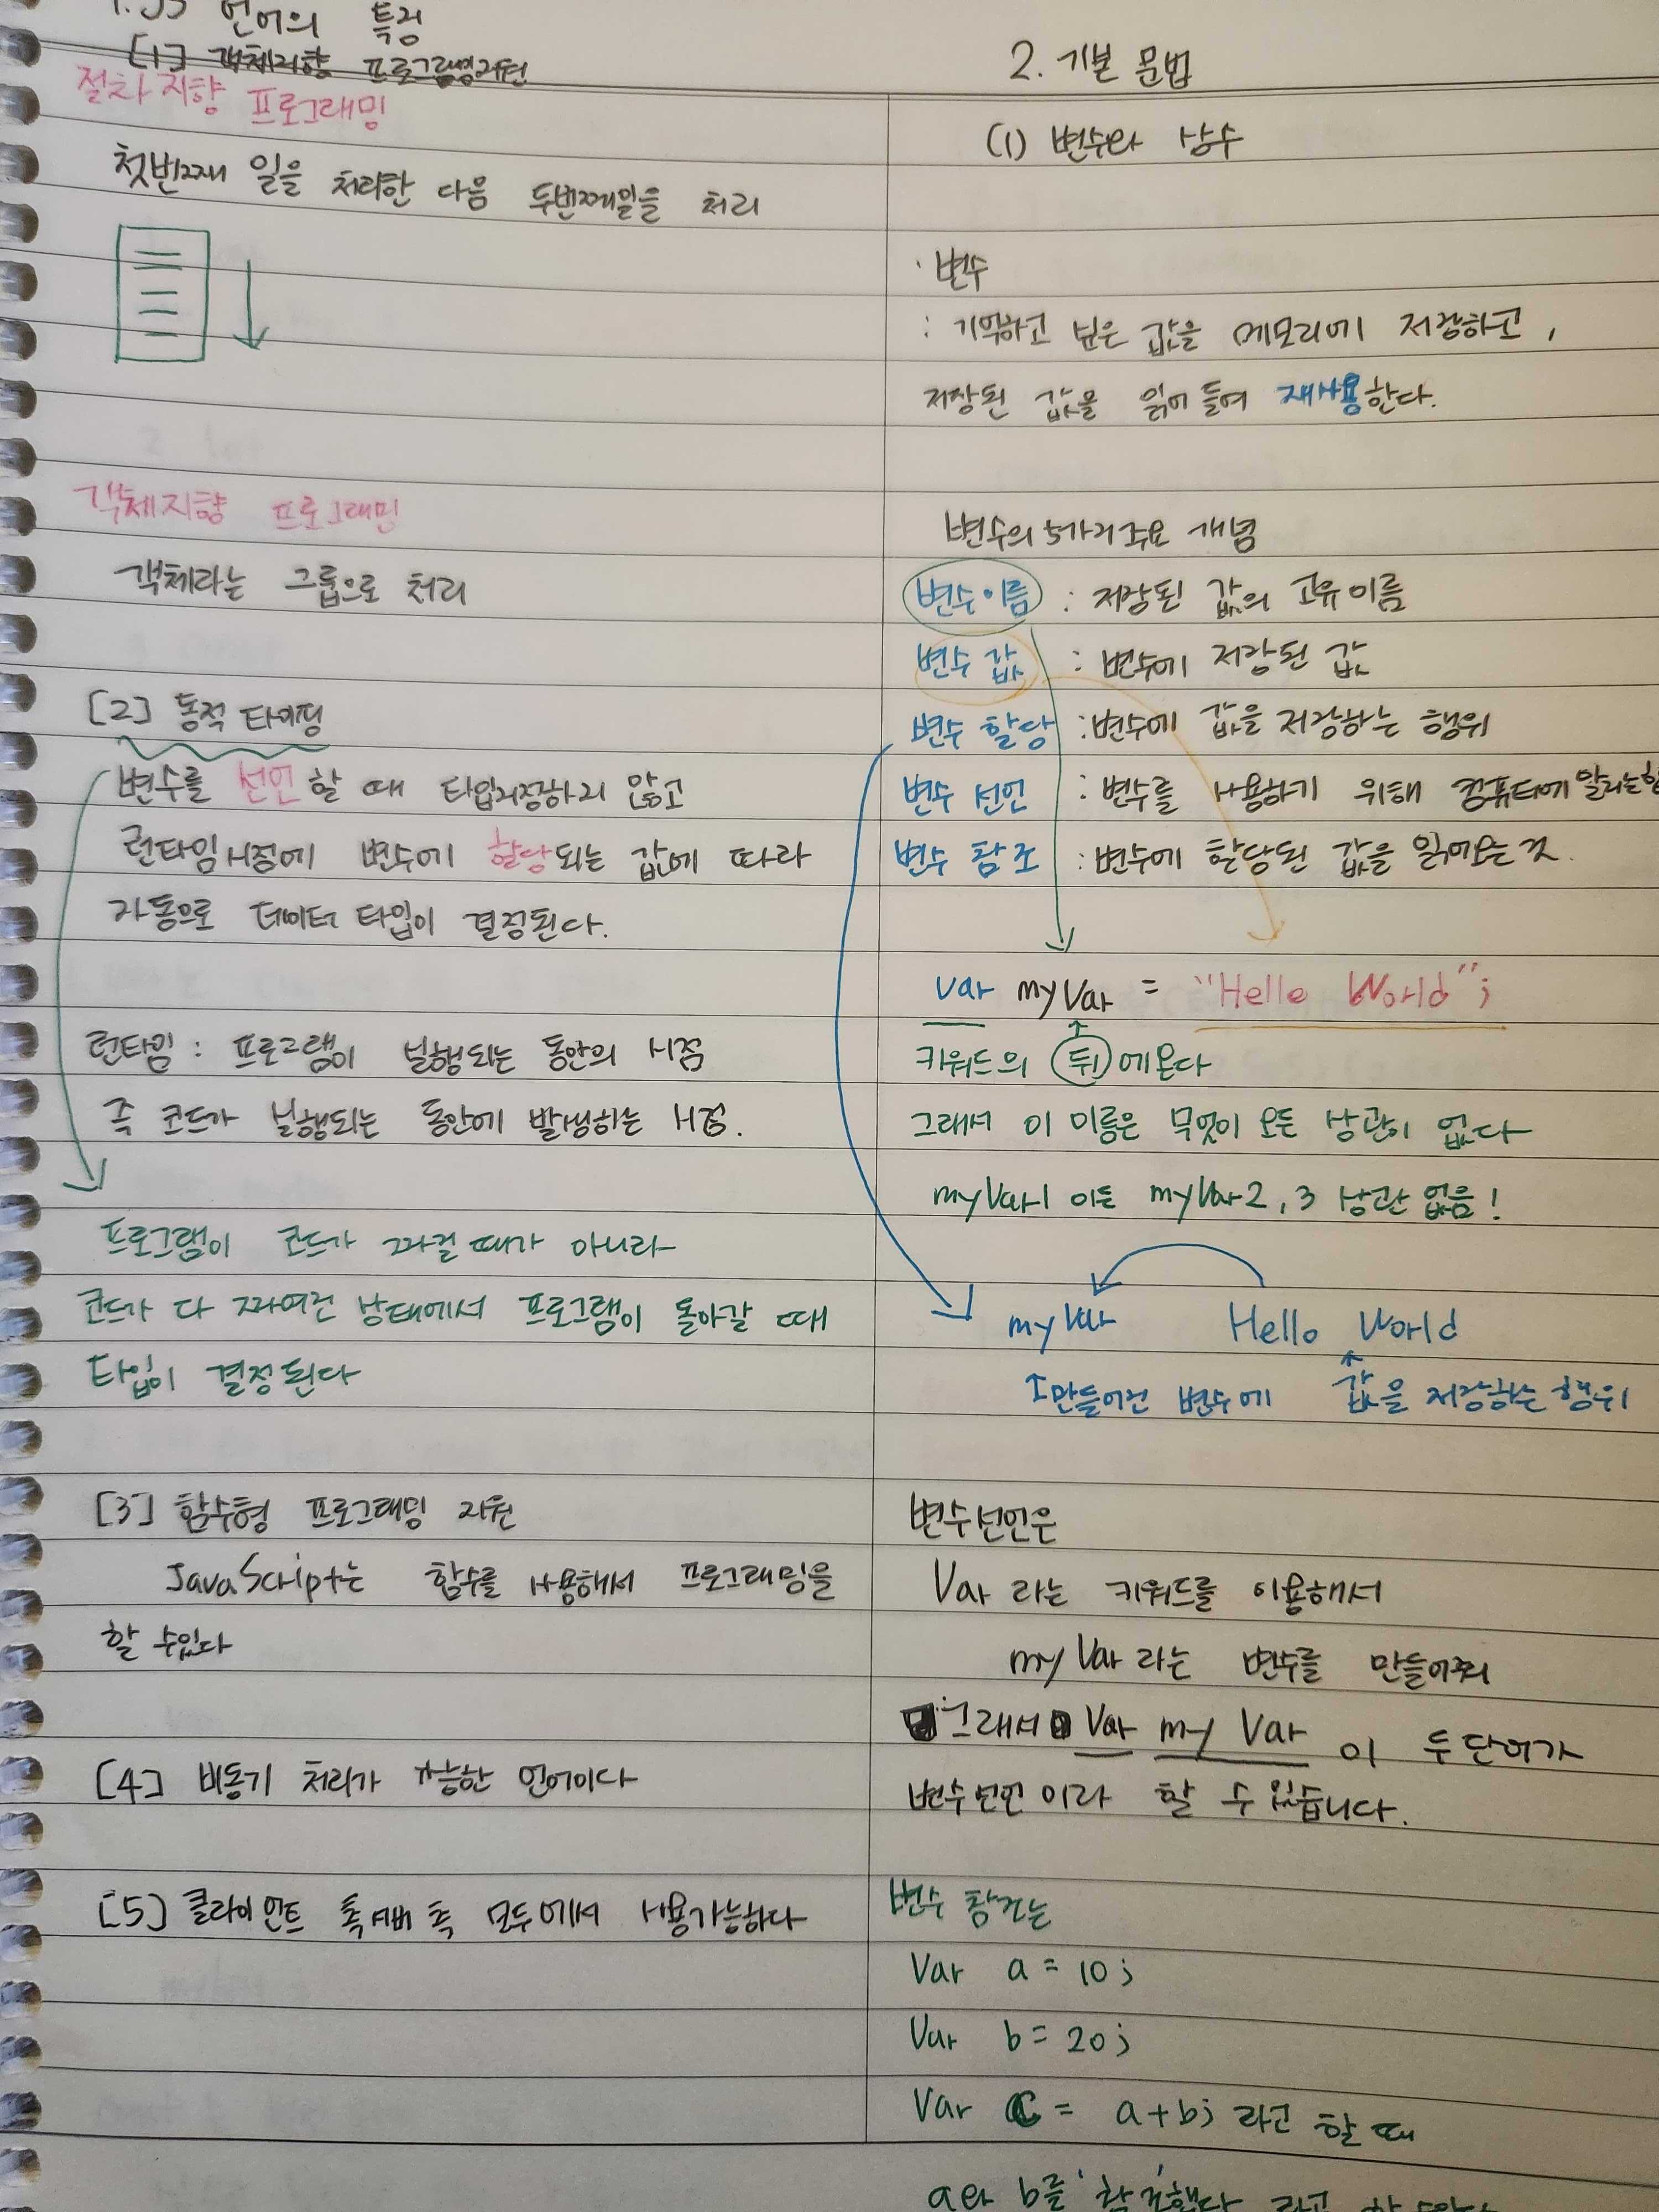 1. JS 언어의 특징
[1] 객체지향 프로그래밍지원
절차지향 프로그래밍
첫번째 일을 처리한 다음 두번째일을 처리
객체지향 프로그래밍
객체라는 그룹으로 처리
[2] 동적 타이핑
변수를 선언할 때 타입지정하지 않고
런타임시점에 변수에 할당되는 값에 따라
자동으로 데이터 타입이 결정된다.
런타임 : 프로그램이 실행되는 동안의 시점
즉 코드가 실행되는 동안에 발생하는 시점.
프로그램이 코드가 짜질 때가 아니라
코드가 다 짜여진 상태에서 프로그램이 돌아갈 때
타입이 결정된다
[3] 함수형 프로그래밍 지원
JavaScript는 함수를 사용해서 프로그래밍을
할 수있다
[4] 비동기 처리가 가능한 언어이다
[5] 클라이언트 측 서버 측 모두에서 사용가능하다
2. 기본 문법
(1) 변수와 상수
· 변수
: 기억하고 싶은 값을 메모리에 저장하고,
저장된 값을 읽어 들여 재사용한다.
변수의 5가지주요 개념
변수이름 : 저장된 값의 고유이름
변수 값 : 변수에 저장된 값
변수 할당 : 변수에 값을 저장하는 행위
변수 선언 : 변수를 사용하기 위해 컴퓨터에 알리는
변수 참조 : 변수에 할당된 값을 읽어오는 것.
var myVar = "Hello World";
키워드의 뒤에온다
그래서 이 이름은 무엇이 오든 상관이 없다
myVar1 이든 myVar2, 3 상관 없음!
myVar Hello World
↑만들어진 변수에 값을 저장하는 행위
변수선언은
Var 라는 키워드를 이용해서
myVar 라는 변수를 만들어줘
그래서 Var my Var 이 두단어가
변수선언 이라 할 수 있습니다.
변수 참조는
Var a = 10;
Var b = 20;
Var C = a+b; 라고 할 때
a와 b를 '참조'했다 라고